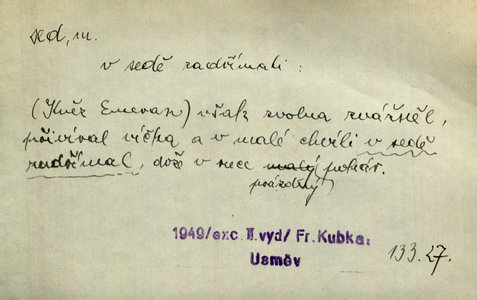 sed, m.
v sedě zadřímati :
(Kněz Emeran) však zvolna zvážněl,
přivíral víčka a v malé chvíli v sedě
zadřímal, drže v ruce malý pohár.
prázdný
1949/exc. II.vyd/ Fr. Kubka:
Usměv
133.27.